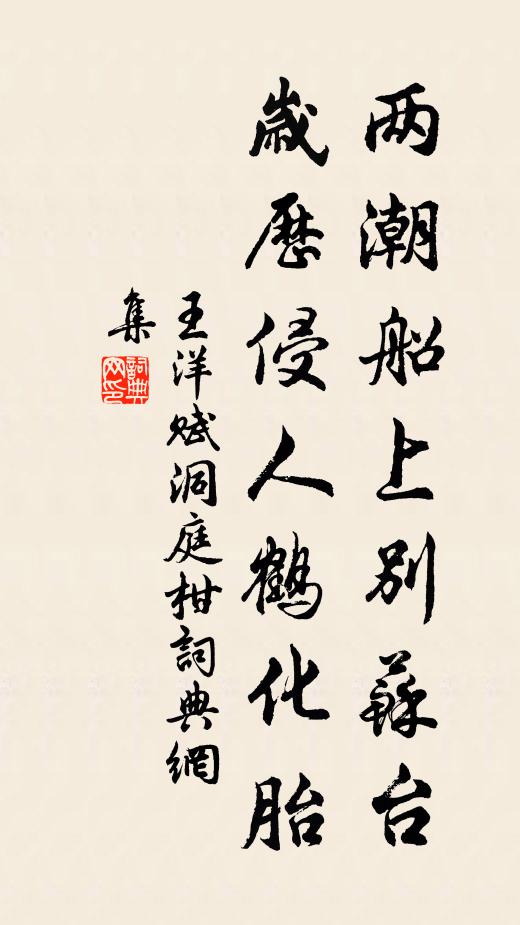 两潮船上别蘇台
歲歷侵人鶴化胎
王洋赋洞庭柑詞典網
集
詞典网印